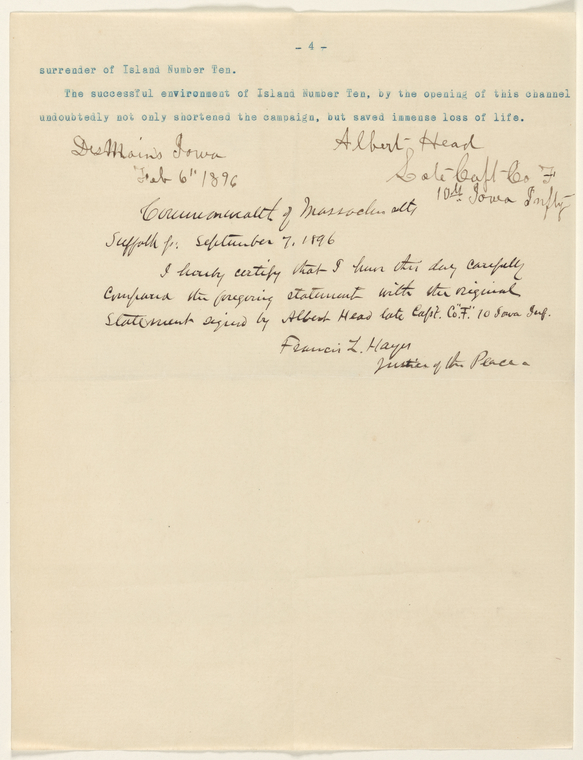 - 4 -
surrender of Island Number Ten.
The successful environment of Island Number Ten, by the opening of this channel
undoubtedly not only shortened the campaign, but saved immense loss of life.
Albert Head
DesMoins Iowa
Late Capt Co F
Feb 6" 1896
10th Iowa Infty
Commonwealth of Massachusetts
Suffolk ss. September 7, 1896
I hereby certify that I have this day carefully
compared the foregoing statement with the original
statement signed by Albert Head late Capt. Co. "F." 10 Iowa Inf.
Francis L. Hayes
Justice of the Peace